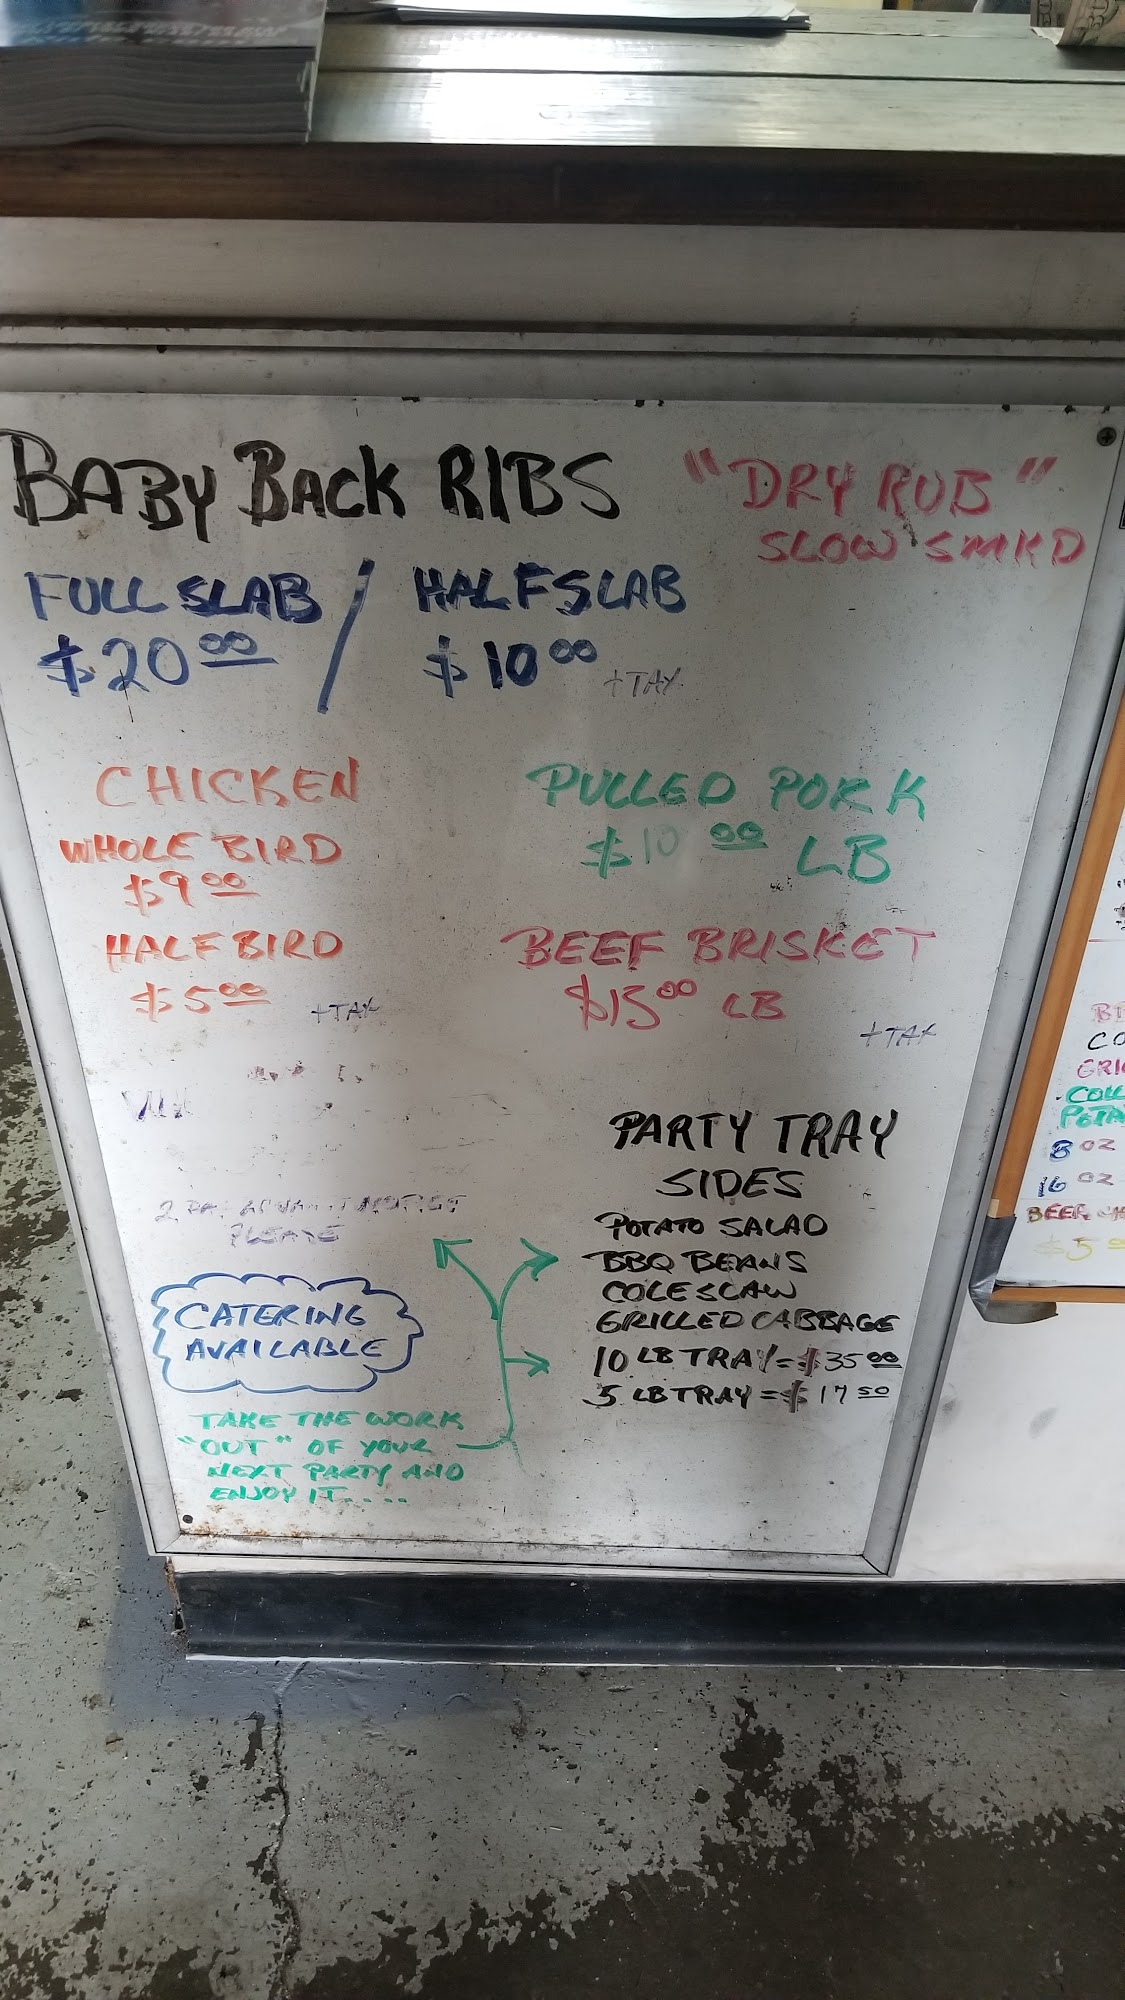 BABY BACK RIBS
"DRY RUB"
SLOW SMKD
FULL SLAB / HALF SLAB
$20.00 $10.00 +TAX
CHICKEN
WHOLE BIRD
$9.00
HALF BIRD
$5.00 +TAX
PULLED PORK
$10.00 LB
BEEF BRISKET
$15.00 LB
+TAX
2 DAY ADVANCE NOTICE
PLEASE
CATERING
AVAILABLE
TAKE THE WORK
"OUT" OF YOUR
NEXT PARTY AND
ENJOY IT....
PARTY TRAY
SIDES
POTATO SALAD
BBQ BEANS
COLESLAW
GRILLED CABBAGE
10 LB TRAY = $35.00
5 LB TRAY = $17.50
8 OZ
16 OZ
BEER
$5